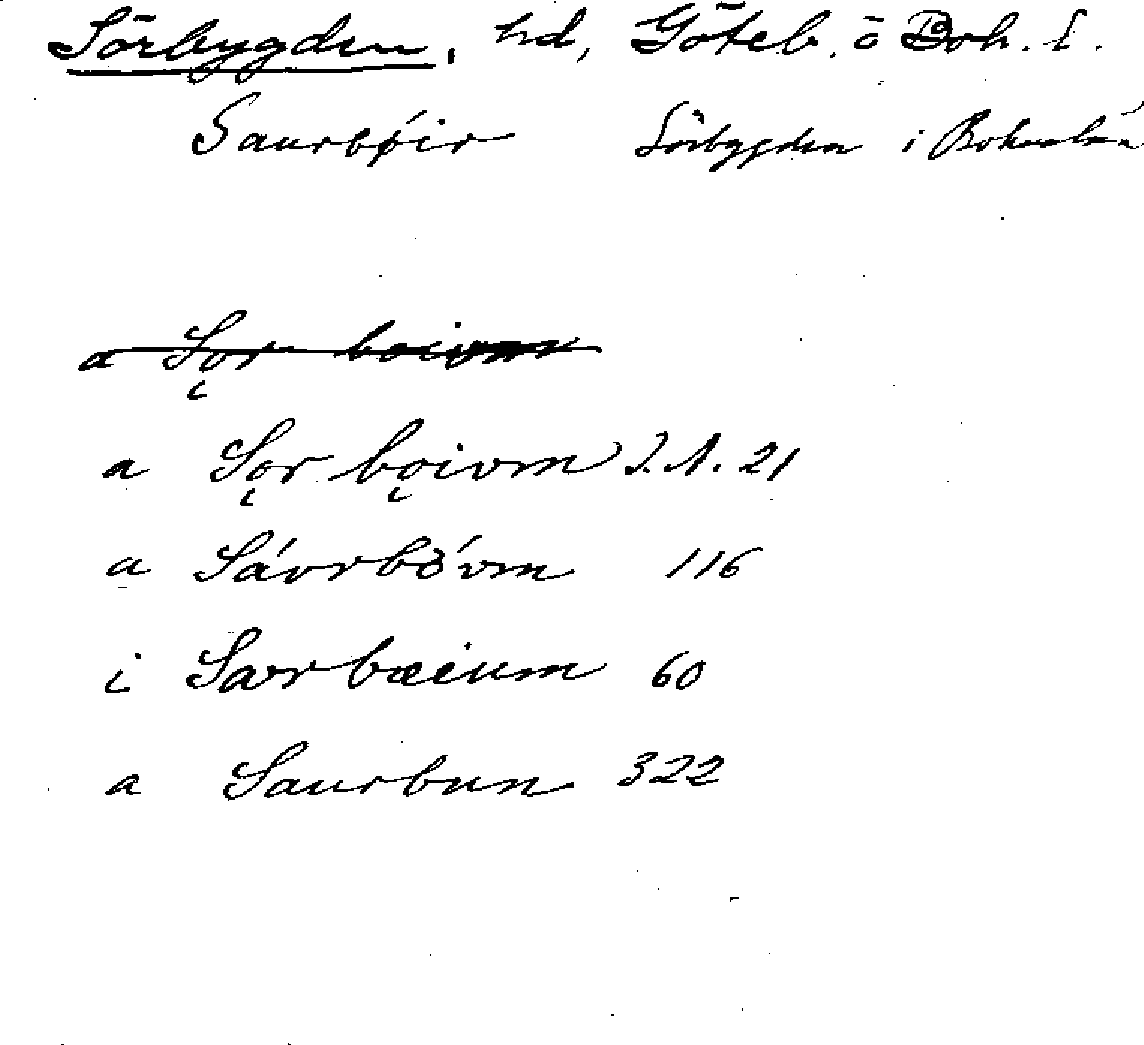 Sörbygden, hd, Göteb. o Boh. l.
Saurbǿir Sörbygden i Bohuslän
a Sǫr boivm
a Sǫr bǫivm J.A. 21
a Sávrbǒ́vm 116
i Særbæium 60
a Saurbun 322